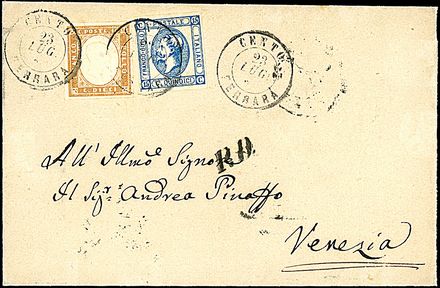 CENTO
23
LUG
FERRARA
POSTE
C. DIECI
FRANCO BOLLO
POSTALE
ITALIANO
C. QUINDICI
CENTO
23
LUG
FERRARA
All' Illmo Signor
Il Sigr. Andrea
Venezia